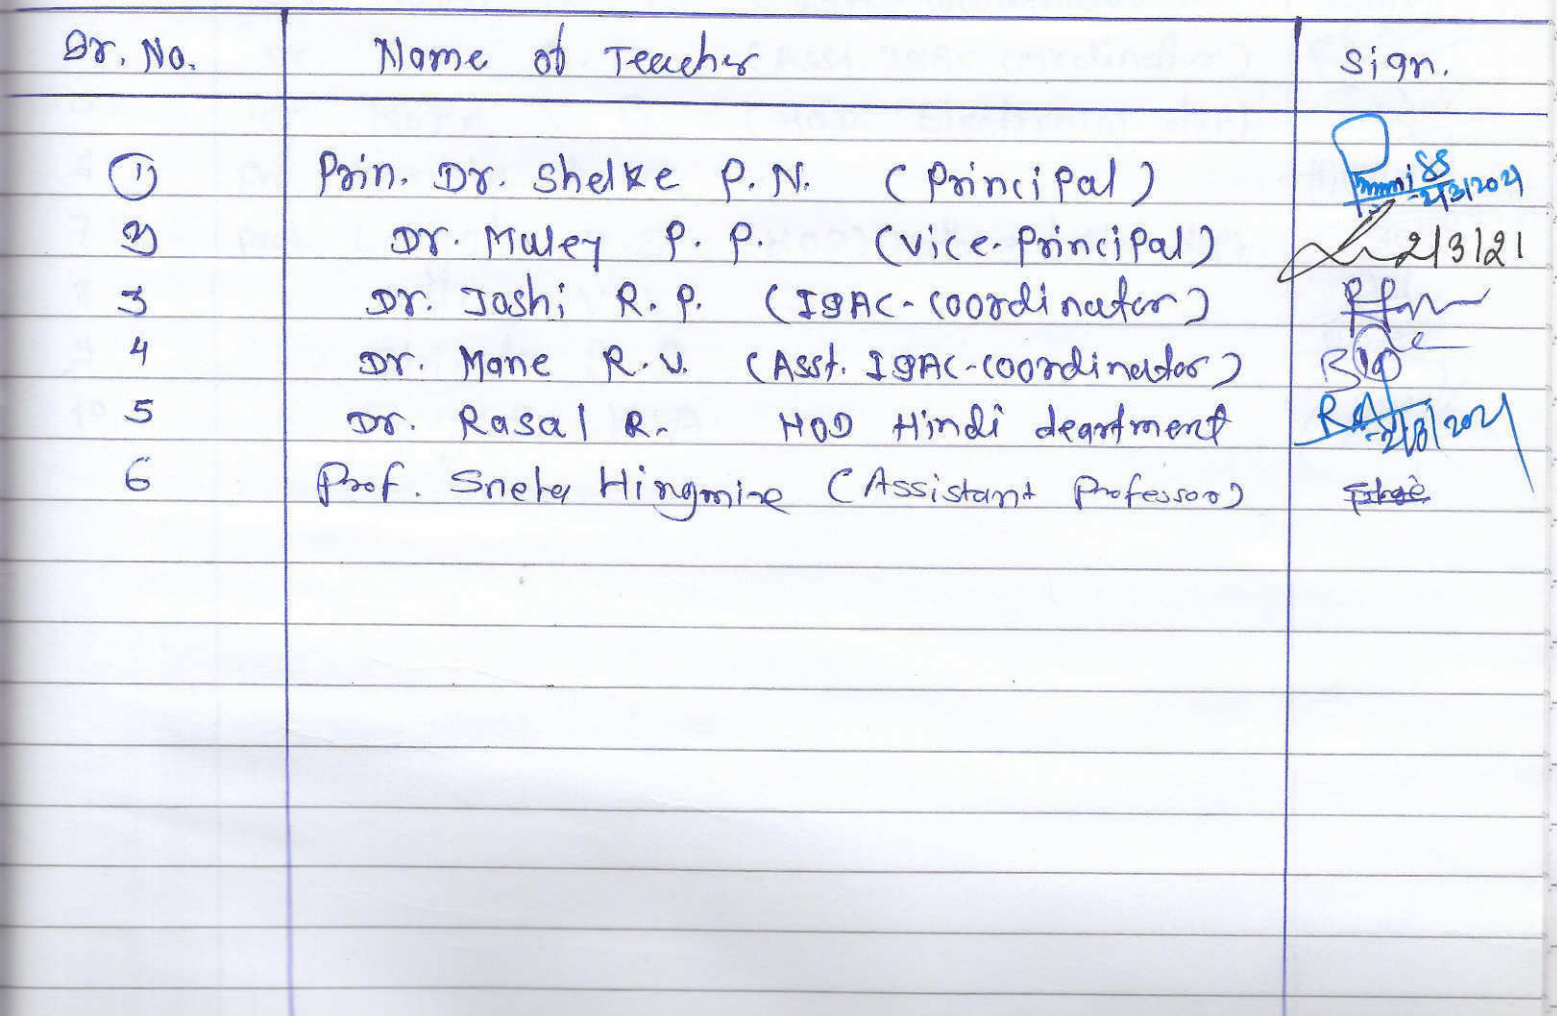 Sr. No. Name of Teacher Sign.
1) Prin. Dr. Shelke P. N. (Principal) 2/3/2021
2) Dr. Muley P. P. (Vice-Principal) 2/3/21
3 Dr. Joshi R. P. (IQAC-Coordinator)
4 Dr. Mane R. V. (Asst. IQAC-Coordinator)
5 Dr. Rasal R. HOD Hindi deartment 2/3/2021
6 Prof. Sneha Hingmire (Assistant Professor)